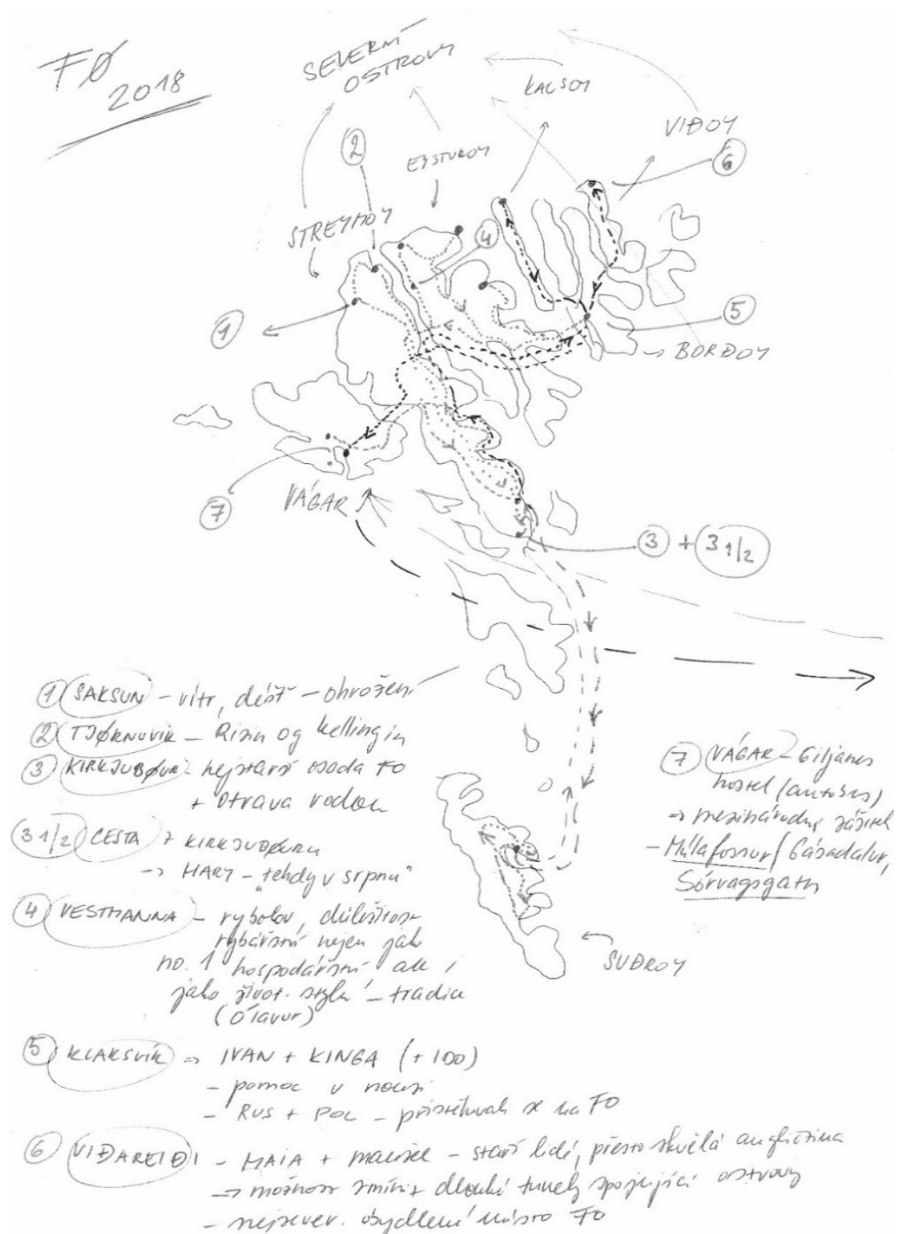 FØ
2018
SEVERNÍ
OSTROVY
KALSOY
VIÐOY
②
⑥
EYSTUROY
STREYMOY
④
①
⑤
→ BORÐOY
⑦
VÁGAR
③ + 3 1/2
① SAKSUN - vítr, déšť - ohrožení
② TJØRNUVÍK - Risin og kellingin
③ KIRKJUBØUR - nejstarší osada FO
+ otrava vodou
3 1/2 CESTA z KIRKJUBØURU
→ MARY - "tehdy v srpnu"
④ VESTMANNA - rybolov, důležitost
rybářství nejen jako
no. 1 hospodářství ale i
jako život. stylu - tradice
(Ólavur)
⑤ KLAKSVÍK → IVAN + KINGA (+ IDO)
- pomoc v nouzi
- RUS + POL - přistěhovali se na FO
⑥ VIÐAREIÐI - MAIA + manžel - staří lidé, přesto skvělá angličtina
→ možnost zmínit dlouhé tunely spojující ostrovy
- nejsever. obydlené místo FO
⑦ VÁGAR - Giljanes
hostel (autobus)
→ mezinárodní zážitek
- Múlafossur / Gásadalur,
Sörvagsgath
SUÐROY